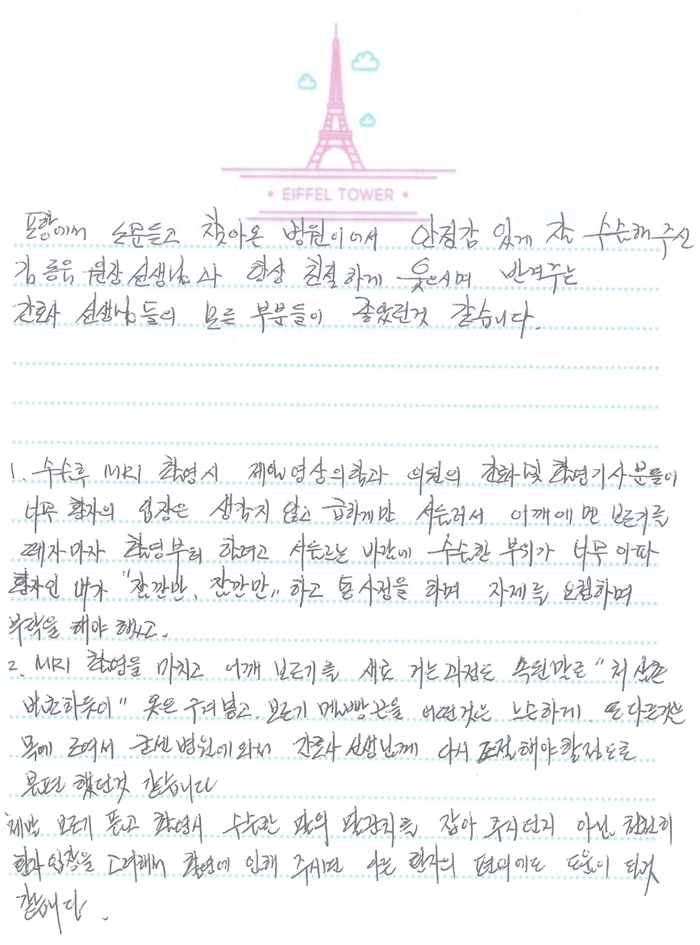 EIFFEL TOWER
포항에서 소문듣고 찾아온 병원이어서 안정감 있게 잘 수술해주신
김종윤 원장선생님과 항상 친절하게 웃으시며 반겨주는
간호사 선생님들의 모든 부분들이 좋았던것 같습니다.
1. 수술후 MRI 촬영시 제일영상의학과 의원의 간호사및 촬영기사분들이
너무 환자의 입장은 생각지 않고 급하게만 서둘러서 어깨에 맨 보조기를
떼자마자 촬영부터 하려고 서두르는 바람에 수술한 부위가 너무 아파
환자인 내가 "잠깐만, 잠깐만" 하고 통사정을 하며 자제를 요청하며
부탁을 해야 했고.
2. MRI 촬영을 마치고 어깨 보조기를 새로 거는과정도 속된말로 "처삼촌
벌초하듯이" 옷은 구겨넣고. 보조기 메는빵끈을 어떤것은 느슨하게. 또 다른것은
목에 조여서 본 병원에 와서 간호사 선생님께 다시 조절해야할정도로
불편 했던것 같습니다
제발 보조기 풀고 촬영시 수술한 팔의 팔관절을 잡아 주시던지 아님, 천천히
환자입장을 고려해서 촬영에 임해 주시면 다른 환자의 편의에도 도움이 될것
같습니다.